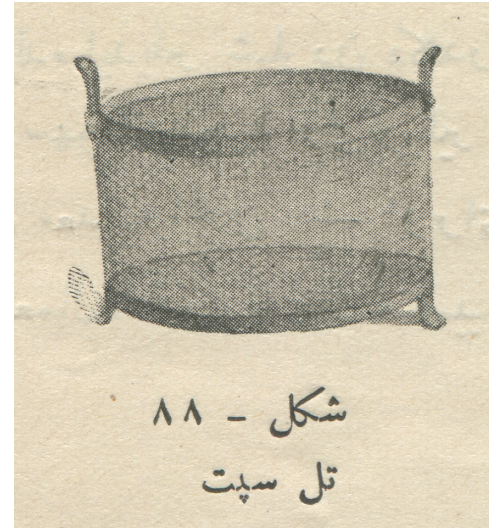 شکل - ۸۸
تل سپت